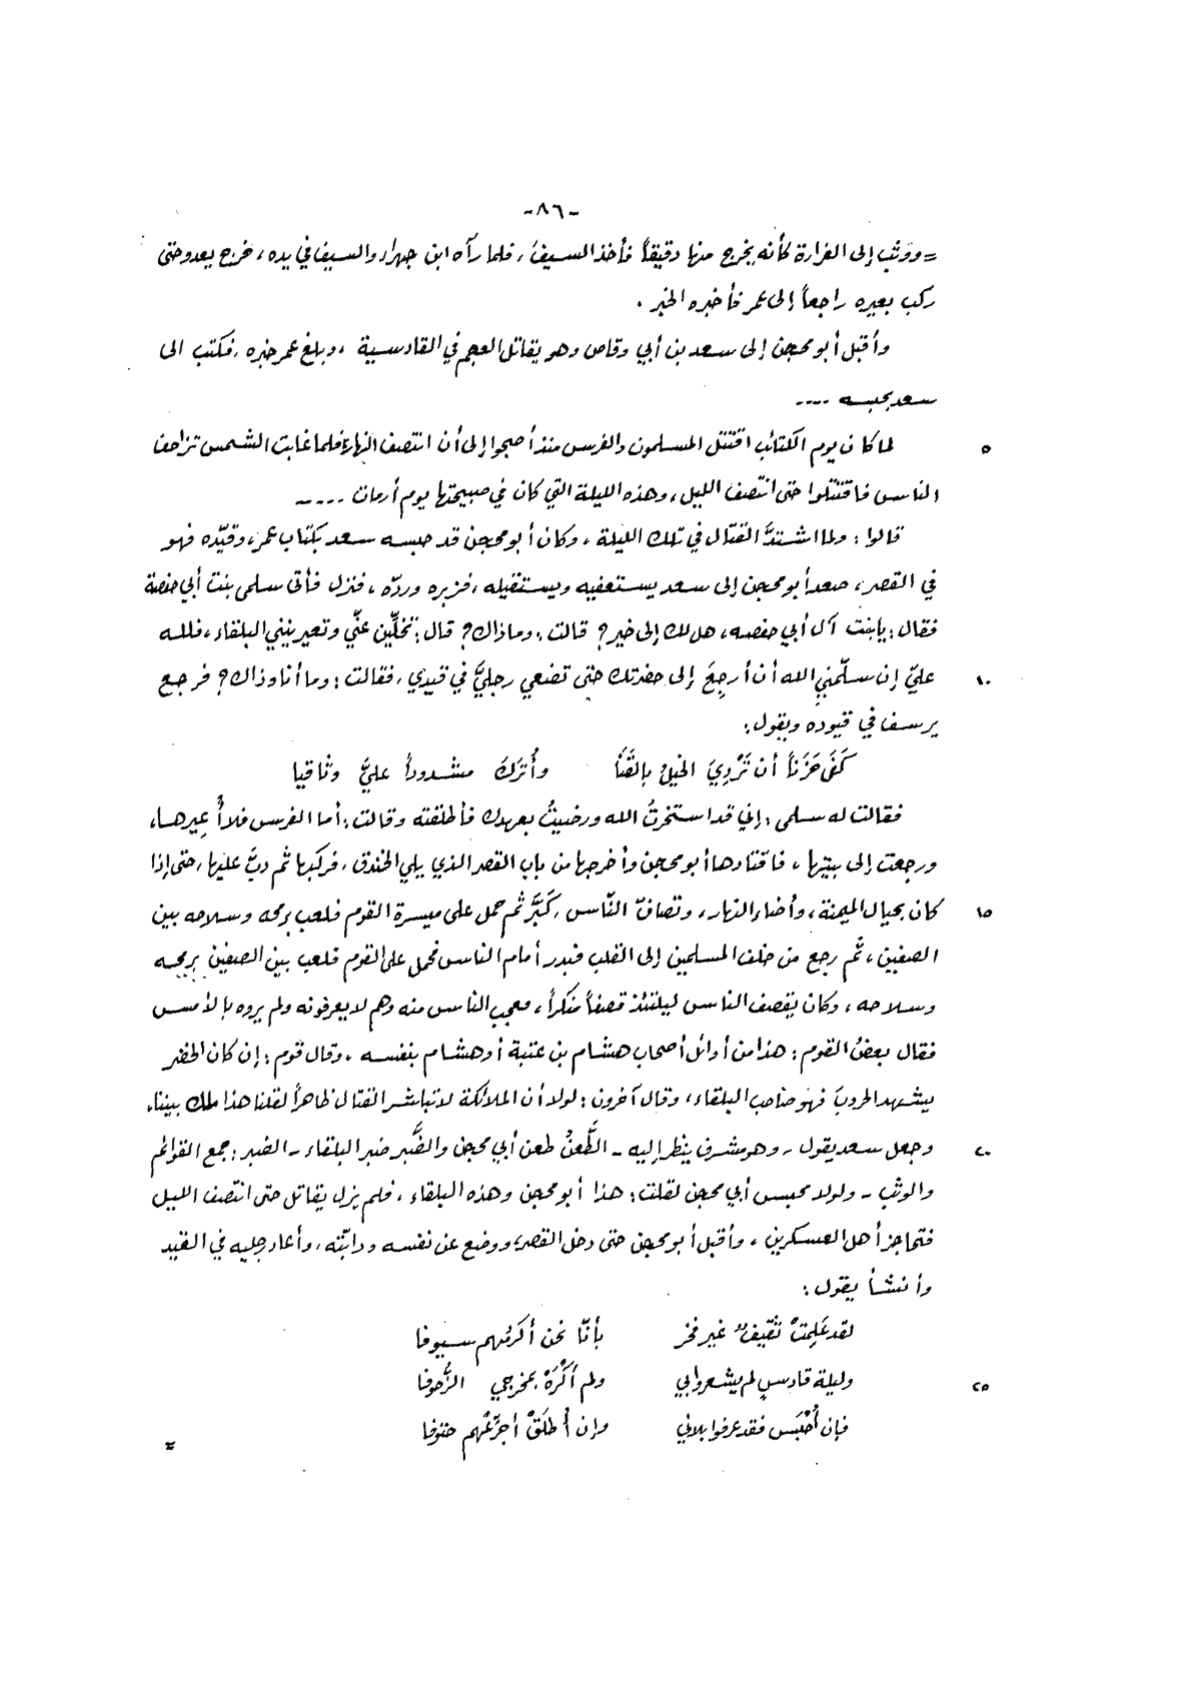 -٨٦-
= ووثب إلى الغرارة كأنه يخرج منها دقيقاً فأخذ السيف، فلما رآه ابن جهراء والسيف في يده، خرج يعدو حتى
ركب بعيره راجعاً إلى عمر فأخبره الخبر.
وأقبل أبو محجن إلى سعد بن أبي وقاص وهو يقاتل العجم في القادسية، وبلغ عمر خبره، فكتب الى
سعد بحبسه ....
٥ لما كان يوم الكتائب اقتتل المسلمون والفرس منذ أصبحوا إلى أن انتصف النهار، فلما غابت الشمس تزاحف
الناس فاقتتلوا حتى انتصف الليل، وهذه الليلة التي كان في صبيحتها يوم أرمات .....
قالوا: ولما اشتدَّ القتال في تلك الليلة، وكان أبو محجن قد حبسه سعد بكتاب عمر، وقيّده فهو
في القصر، صعد أبو محجن إلى سعد يستعفيه ويستقيله، فزبره وردّه، فنزل فأتى سلمى بنت أبي حفصة
فقال: يابنت آل أبي حفصه، هل لك إلى خير؟ قالت: وماذاك؟ قال: تخلّين عنّي وتعيرينني البلقاء، فلله
١٠ عليّ إن سلّمني الله أن أرجِعَ إلى حضرتك حتى تضعي رجليَّ في قيدي، فقالت: وما أنا وذاك؟ فرجع
يرسف في قيوده ويقول:
كَفَى حَزَناً أن تَرْدِيَ الخيلُ بالقَنَا وأُترَكَ مشدوداً عليَّ وثاقيا
فقالت له سلمى: إني قد استخرتُ الله ورضيتُ بعهدك فأطلقته وقالت: أما الفرس فلا أُعِيرها،
ورجعت إلى بيتها، فاقتادها أبو محجن وأخرجها من باب القصر الذي يلي الخندق، فركبها ثم دبَّ عليها، حتى إذا
١٥ كان بحيال الميمنة، وأضاء النهار، وتصافّ النّاس، كَبَّر ثم حمل على ميسرة القوم فلعب برمحه وسلاحه بين
الصفين، ثم رجع من خلف المسلمين إلى القلب فبدر أمام الناس فحمل على القوم فلعب بين الصفين برمحه
وسلاحه، وكان يقصف الناس ليلتئذ قصفاً منكراً، فعجب الناس منه وهم لا يعرفونه ولم يروه بالأمس
فقال بعض القوم: هذا من أوائل أصحاب هشام بن عتبة أو هشام بنفسه، وقال قوم: إن كان الخضر
يشهد الحروبَ فهو صاحب البلقاء، وقال آخرون: لولا أن الملائكة لا تباشر القتال ظاهراً لقلنا هذا ملك بيننا،
٢٠ وجعل سعد يقول - وهو مشرف ينظر إليه - الطَّعنُ طعن أبي محجن والضَّبر ضبر البلقاء - الضبر: جمع القوائم
والوثب - ولولا محبس أبي محجن لقلت: هذا أبو محجن وهذه البلقاء، فلم يزل يقاتل حتى انتصف الليل
فتحاجز أهل العسكرين، وأقبل أبو محجن حتى دخل القصر، ووضع عن نفسه ودابّته، وأعاد رجليه في القيد
وأنشأ يقول:
لقد عَلِمتْ ثقيفٌ غير فخر بأنّا نحن أكرمُهم سيوفا
٢٥ وليلة قادسٍ لم يشعروا بي ولم أكْرَهْ بمخرجي الزُّحوفا
فإن أُحْبَس فقد عرفوا بلائي وإن أُطلَقْ أجرِّعْهم حتوفا
=